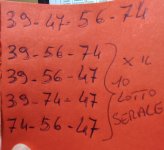 39-47-56-74
39-56-74
39-56-47
39-74-47
74-56-47
X IL
10
LOTTO
SERALE